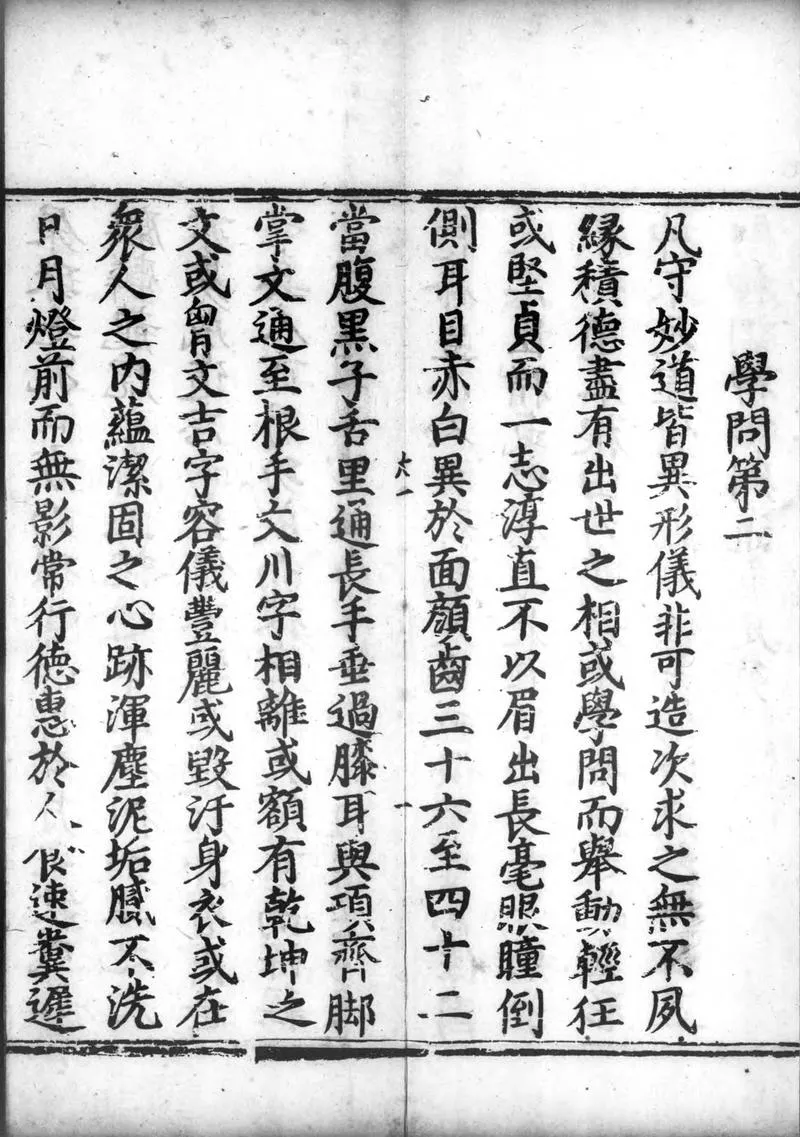 學問第二
凡守妙道皆異形儀非可造次求之無不夙
緣積德盡有出世之相或學問而舉動輕狂
或堅貞而一志淳直不以眉出長毫眼瞳倒
側耳目赤白異於面顔齒三十六至四十二
六一
當腹黑子舌里通長手垂過膝耳與項齊脚
掌文通至根手文川字相離或額有乾坤之
文或胷文吉字容儀豐麗或毀汙身衣或在
衆人之內蘊潔固之心跡渾塵泥垢膩不洗
日月燈前而無影常行德惠於人 速糞遲